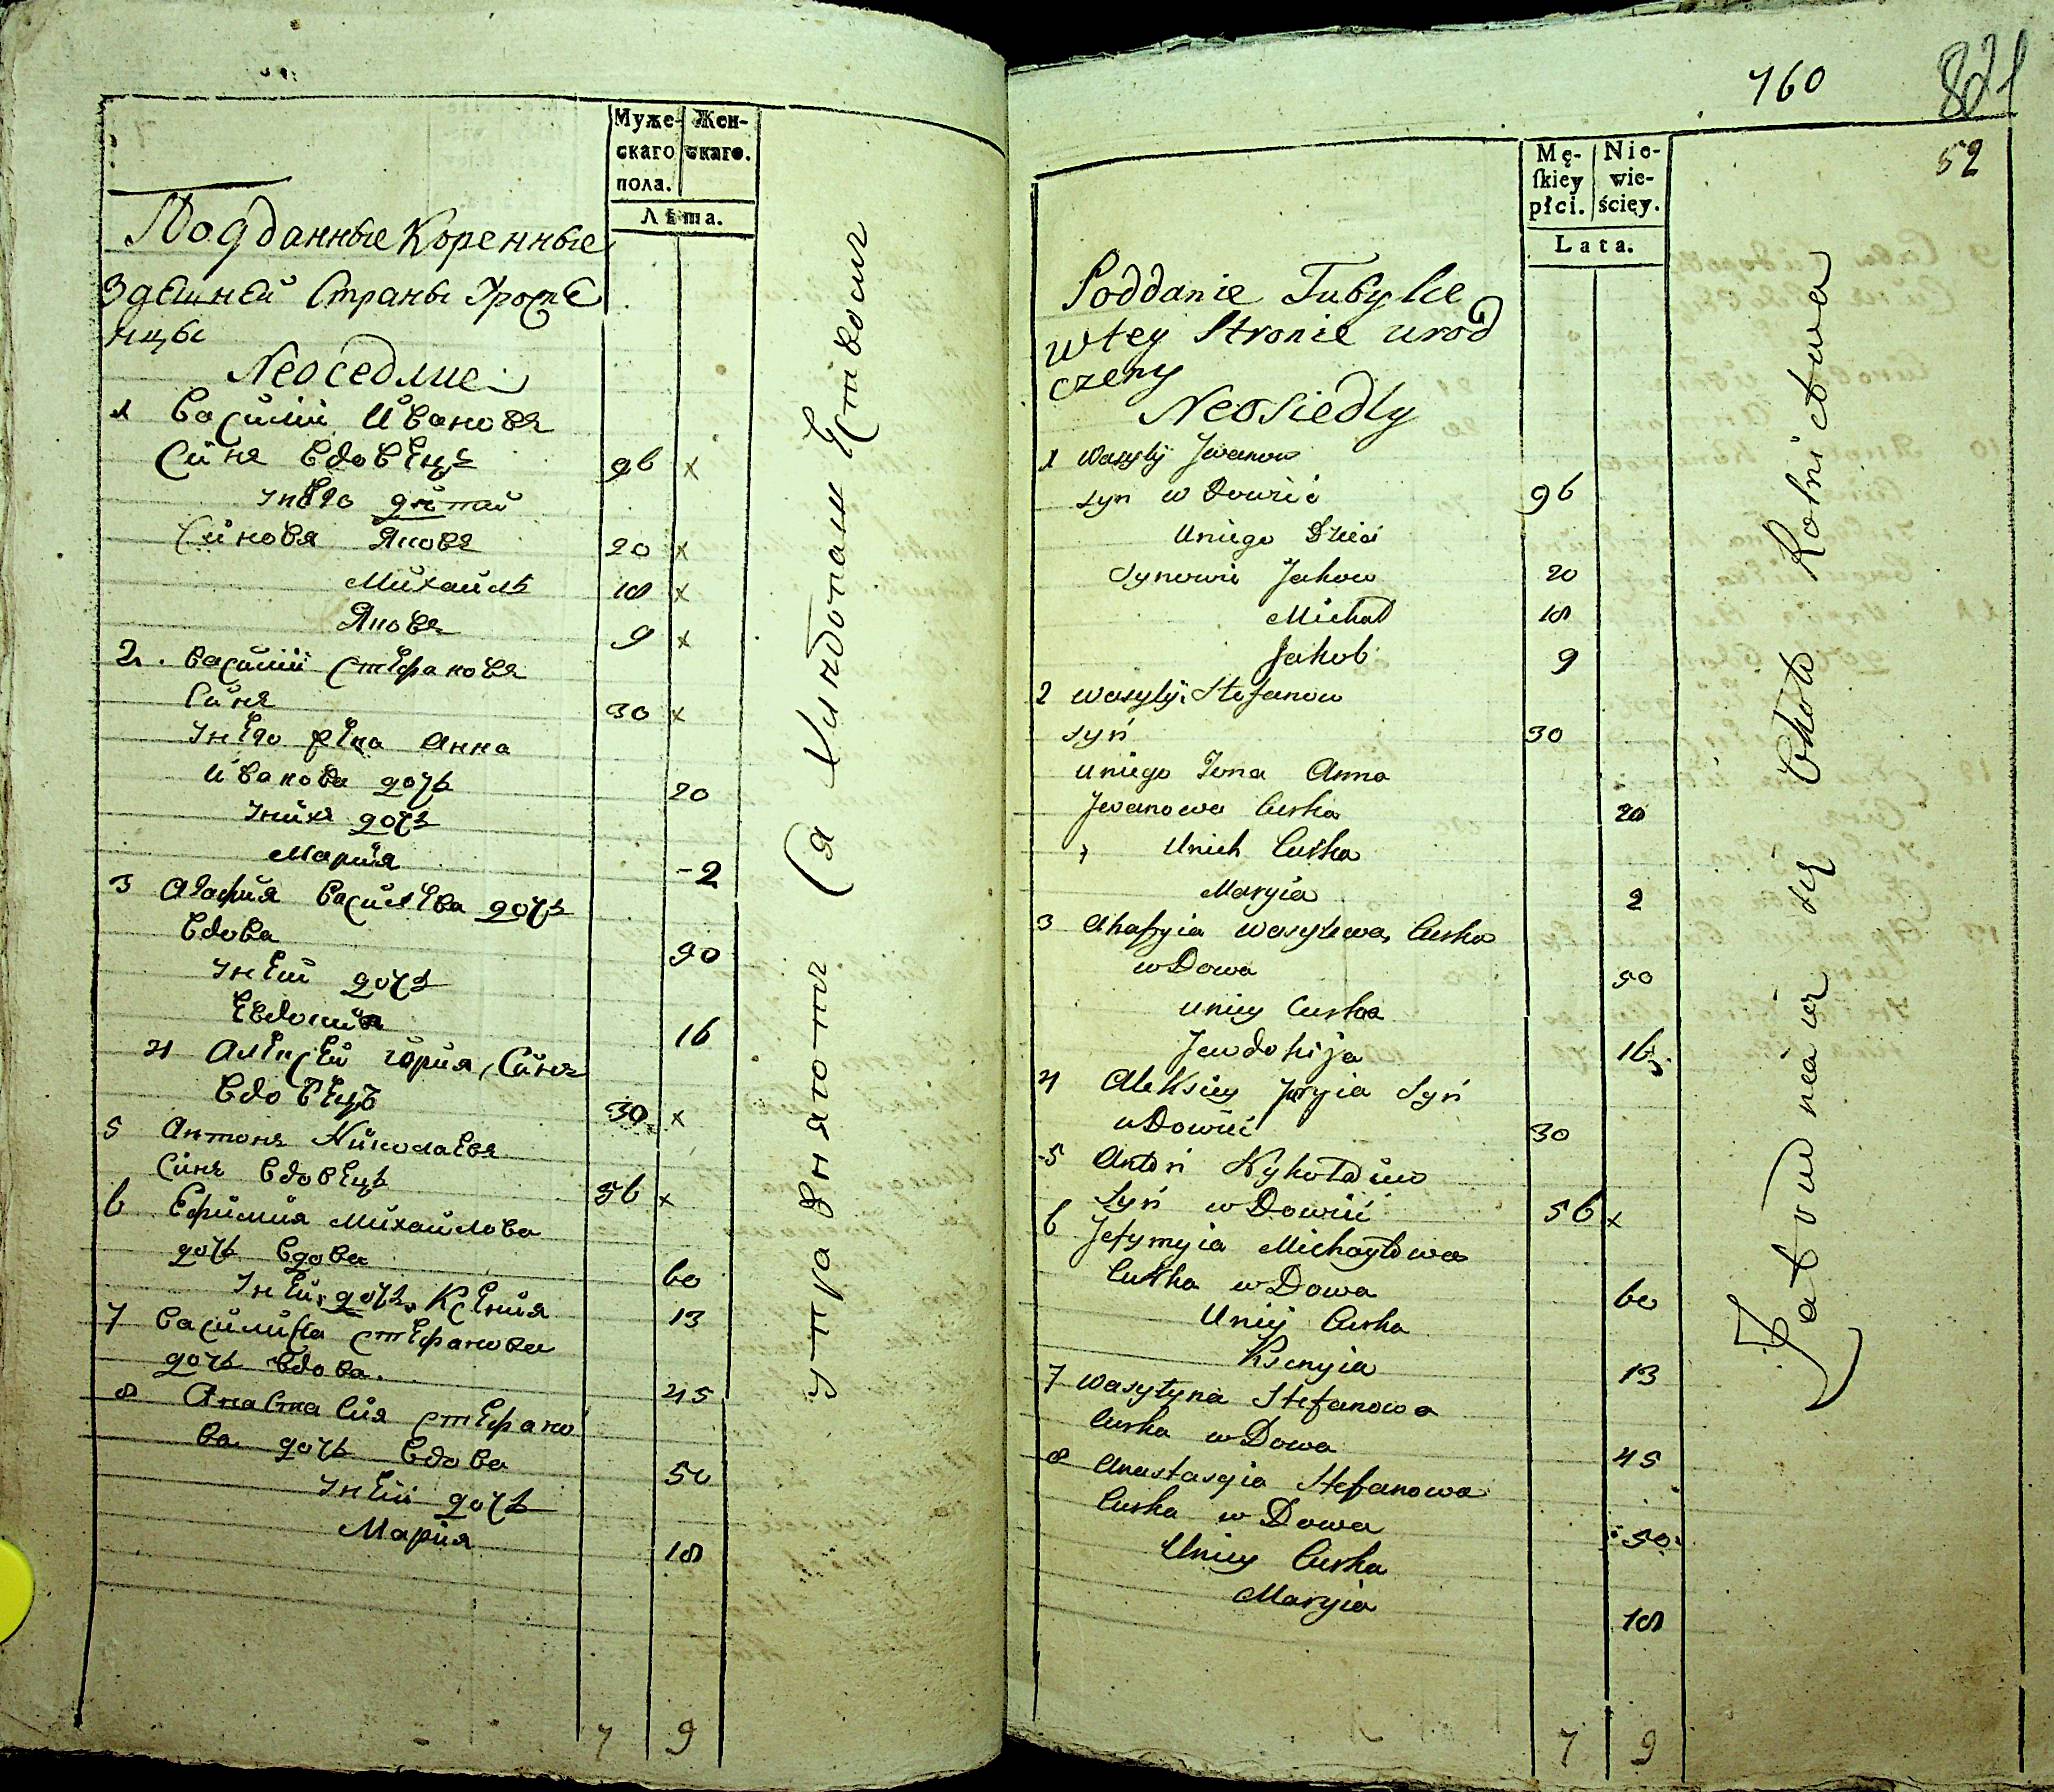 Муже-
скаго
пола.
Жен-
скаго.
Лѣта.
Подданные Коренные
Здешней Страны Уроже
нцы
Неоседлие
1 Василій Ивановъ
Синъ Вдовецъ 96 x
Унего дѣтей
Синовя Яковъ 20 x
Михаилъ 18 x
Яковъ 9 x
2. Василій Стефановъ
Синъ 30 x
Унего Анна
Иванова дочь 20
Унихъ дочъ
Мария -2
3 Агафия Василева дочъ
Вдова 90
Уней дочъ
Евдокия 16
4 Алексей Юрия Синъ
Вдовецъ 30 x
5 Антонъ Николаевъ
Синъ Вдовецъ 56 x
6 Ефимия Михайлова
дочь Вдова 60
Уней дочь Ксения 13
7 Василина Стефанова
дочь Вдова. 45
8 Анастасия Стефано
ва дочь Вдова 50
Уней дочь
Мария 18
7 9
упражняются Хлебопашеством
760
821
52
Mę-
ſkiey
płci.
Nie-
wie-
ścięy.
Lata.
Poddanie Tubylce
wtey Stronie urod
czeny
Neosiedly
1 Wasyly Jwanow
syn wDowiec 96
Uniego Dzieci
Synowie Jakow 20
Michał 18
Jakob 9
2 Wasyly Stefanow
syn 30
uniego Żona Anna
Jwanowa Curka 20
Unich Curka
Maryia 2
3 Ahafyia Wasylewa Curka
wDowa 50
uniey Curka
Jewdokija 16
4 Aleksiey Juryia Syn
wDowiec 30
5 Anton Nykołaiew
Syn wDowiec 56 x
6 Jefymyia Michayłowa
Curka wDowa 60
Uniey Curka
Ksenyia 13
7 Wasyłyna Stefanowa
Curka wDowa 45
8 Anastasyia Stefanowa
Curka wDowa 50
Uniey Curka
Maryia 18
7 9
Zatrudniaią się Około Rolnictwa